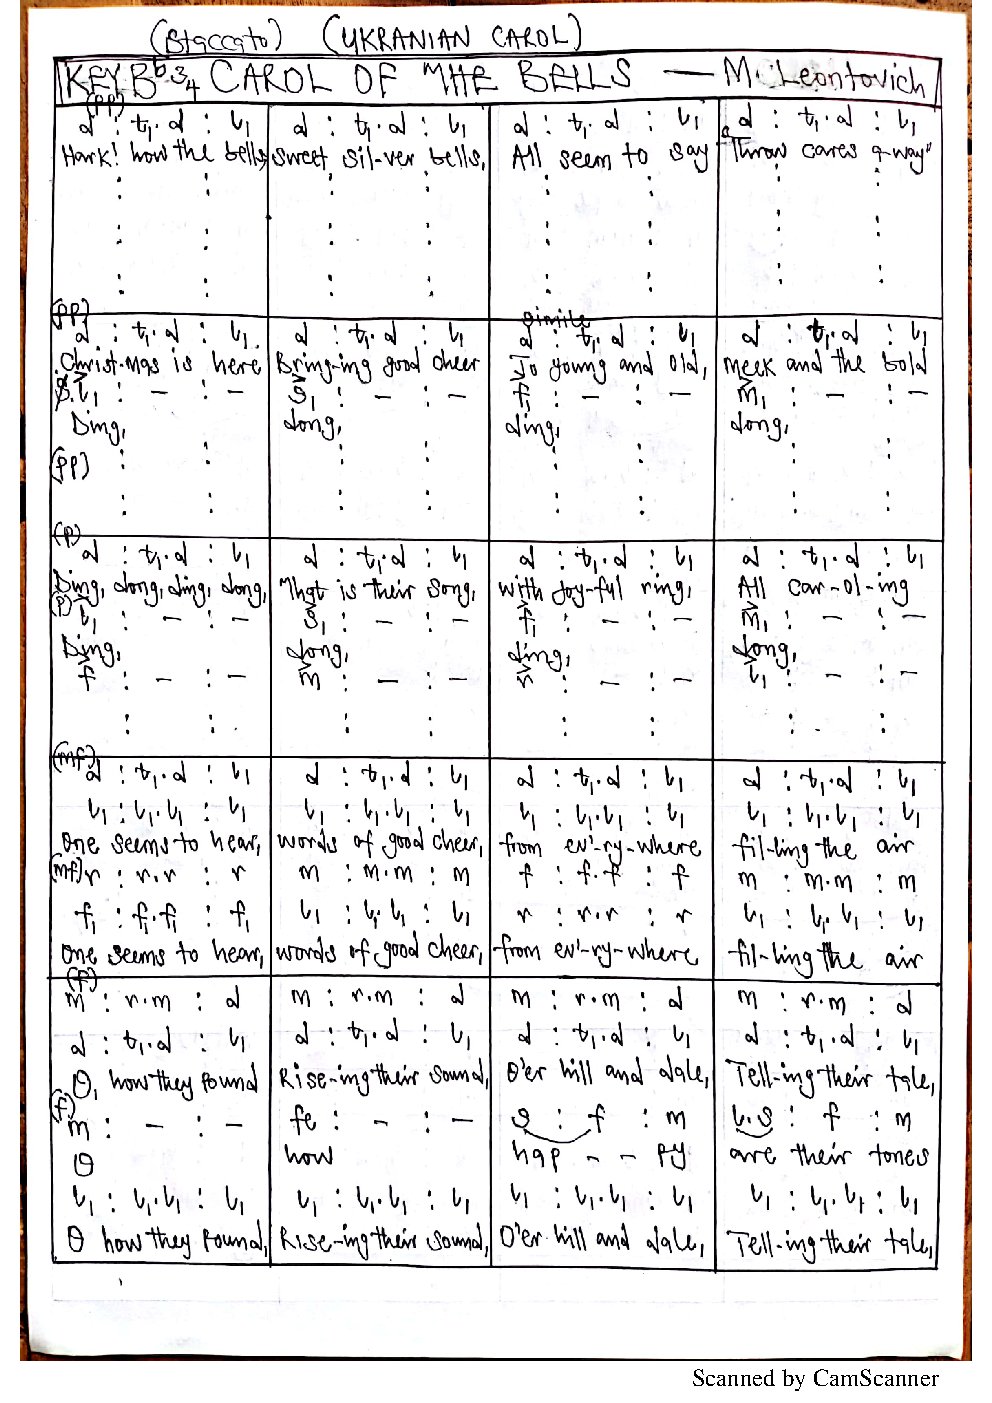 (Staccato) (UKRANIAN CAROL)
KEY Bb 3/4 CAROL OF THE BELLS — M. Leontovich
(pp)
d : t₁.d : l₁ | d : t₁.d : l₁ | d : t₁.d : l₁ | d : t₁.d : l₁
Hark! how the bells, | sweet sil-ver bells, | All seem to say | "Throw cares a-way"
: : | : : | : : | : :
: : | : : | : : | : :
: : | : : | : : | : :
(pp) simile
d : t₁.d : l₁ | d : t₁.d : l₁ | d : t₁.d : l₁ | d : t₁.d : l₁
Christ-mas is here | Bring-ing good cheer | To young and old, | meek and the bold
S. l₁ : – : – | s₁ : – : – | f₁ : – : – | m₁ : – : –
Ding, | dong, | ding, | dong,
: : | : : | : : | : :
(pp)
: : | : : | : : | : :
(p)
d : t₁.d : l₁ | d : t₁.d : l₁ | d : t₁.d : l₁ | d : t₁.d : l₁
Ding, dong, ding, dong, | That is their song, | with Joy-ful ring, | All car-ol-ing
(p) l₁ : – : – | s₁ : – : – | f₁ : – : – | m₁ : – : –
Ding, | dong, | ding, | dong,
f : – : – | m : – : – | r : – : – | l₁ : – : –
: : | : : | : : | : :
(mf)
d : t₁.d : l₁ | d : t₁.d : l₁ | d : t₁.d : l₁ | d : t₁.d : l₁
l₁ : l₁.l₁ : l₁ | l₁ : l₁.l₁ : l₁ | l₁ : l₁.l₁ : l₁ | l₁ : l₁.l₁ : l₁
One seems to hear, | words of good cheer, | from ev'-ry-where | fil-ling the air
(mf) r : r.r : r | m : m.m : m | f : f.f : f | m : m.m : m
f₁ : f₁.f₁ : f₁ | l₁ : l₁.l₁ : l₁ | r : r.r : r | l₁ : l₁.l₁ : l₁
One seems to hear, | words of good cheer, | from ev'-ry-where | fil-ling the air
(f)
m : r.m : d | m : r.m : d | m : r.m : d | m : r.m : d
d : t₁.d : l₁ | d : t₁.d : l₁ | d : t₁.d : l₁ | d : t₁.d : l₁
O, how they pound | Rise-ing their sound, | O'er hill and dale, | Tell-ing their tale,
(f) m : – : – | fe : – : – | s : f : m | l.s : f : m
O | how | hap - - py | are their tones
l₁ : l₁.l₁ : l₁ | l₁ : l₁.l₁ : l₁ | l₁ : l₁.l₁ : l₁ | l₁ : l₁.l₁ : l₁
O how they pound, | Rise-ing their sound, | O'er hill and dale, | Tell-ing their tale,
Scanned by CamScanner